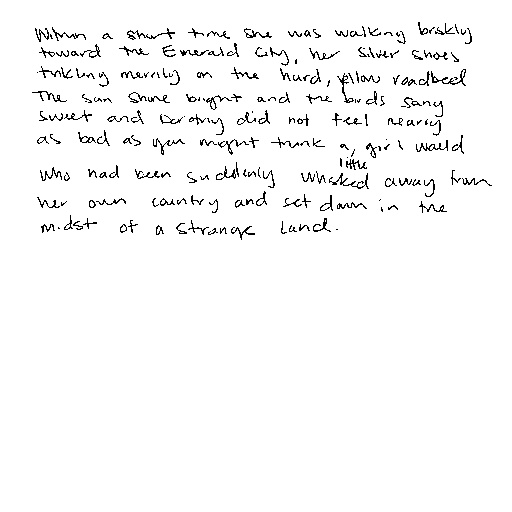 Within a short time she was walking briskly
toward the Emerald City, her Silver Shoes
tinkling merrily on the hard, yellow roadbed
The sun shone bright and the birds sang
sweet and Dorothy did not feel nearly
as bad as you might think a little girl would
who had been suddenly whisked away from
her own country and set down in the
midst of a strange land.